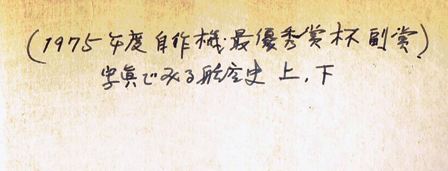 (1975年度自作機最優秀賞杯副賞)
写真でみる航空史 上,下